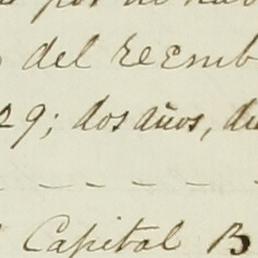 por no hab
del reemb
29; dos años, du
Capital B